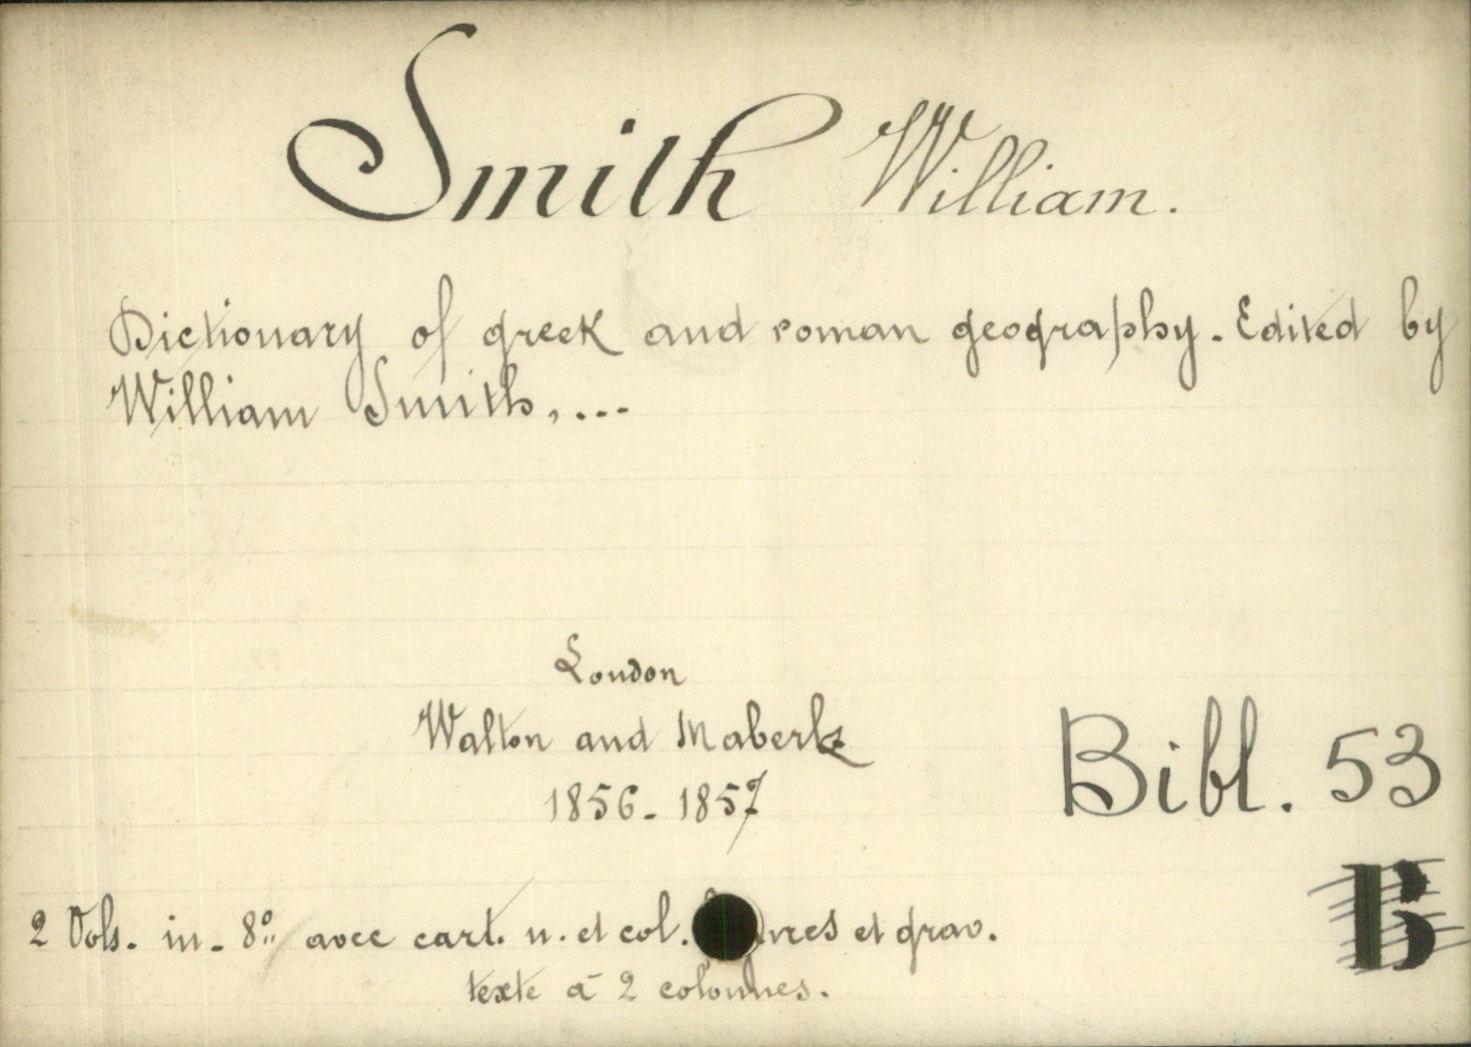 Smith William.
Dictionary of greek and roman geography. Edited by
William Smith, ...
London
Walton and Maberly
1856-1857
Bibl. 53
B
2 Vols. in-8º avec cart. n. et col. et grav.
texte à 2 colonnes.